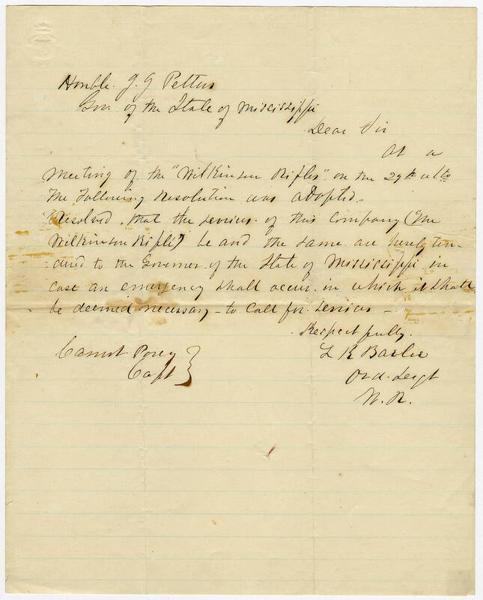 Honble. J. J. Pettus
Gov. of the State of Mississippi
Dear Sir
At a
meeting of the "Wilkinson Rifles" on the 29th ulto
The Following Resolution was adopted.
Resolved. that the services of this Company (The
Wilkinson Rifles) be and the same are hereby ten-
dered to the Governor of the State of Mississippi in
case an emergency shall occur in which it shall
be deemed necessary to call for services
Respectfully.
Carnot Posey } L R
Capt Ord. Sergt
W. R.